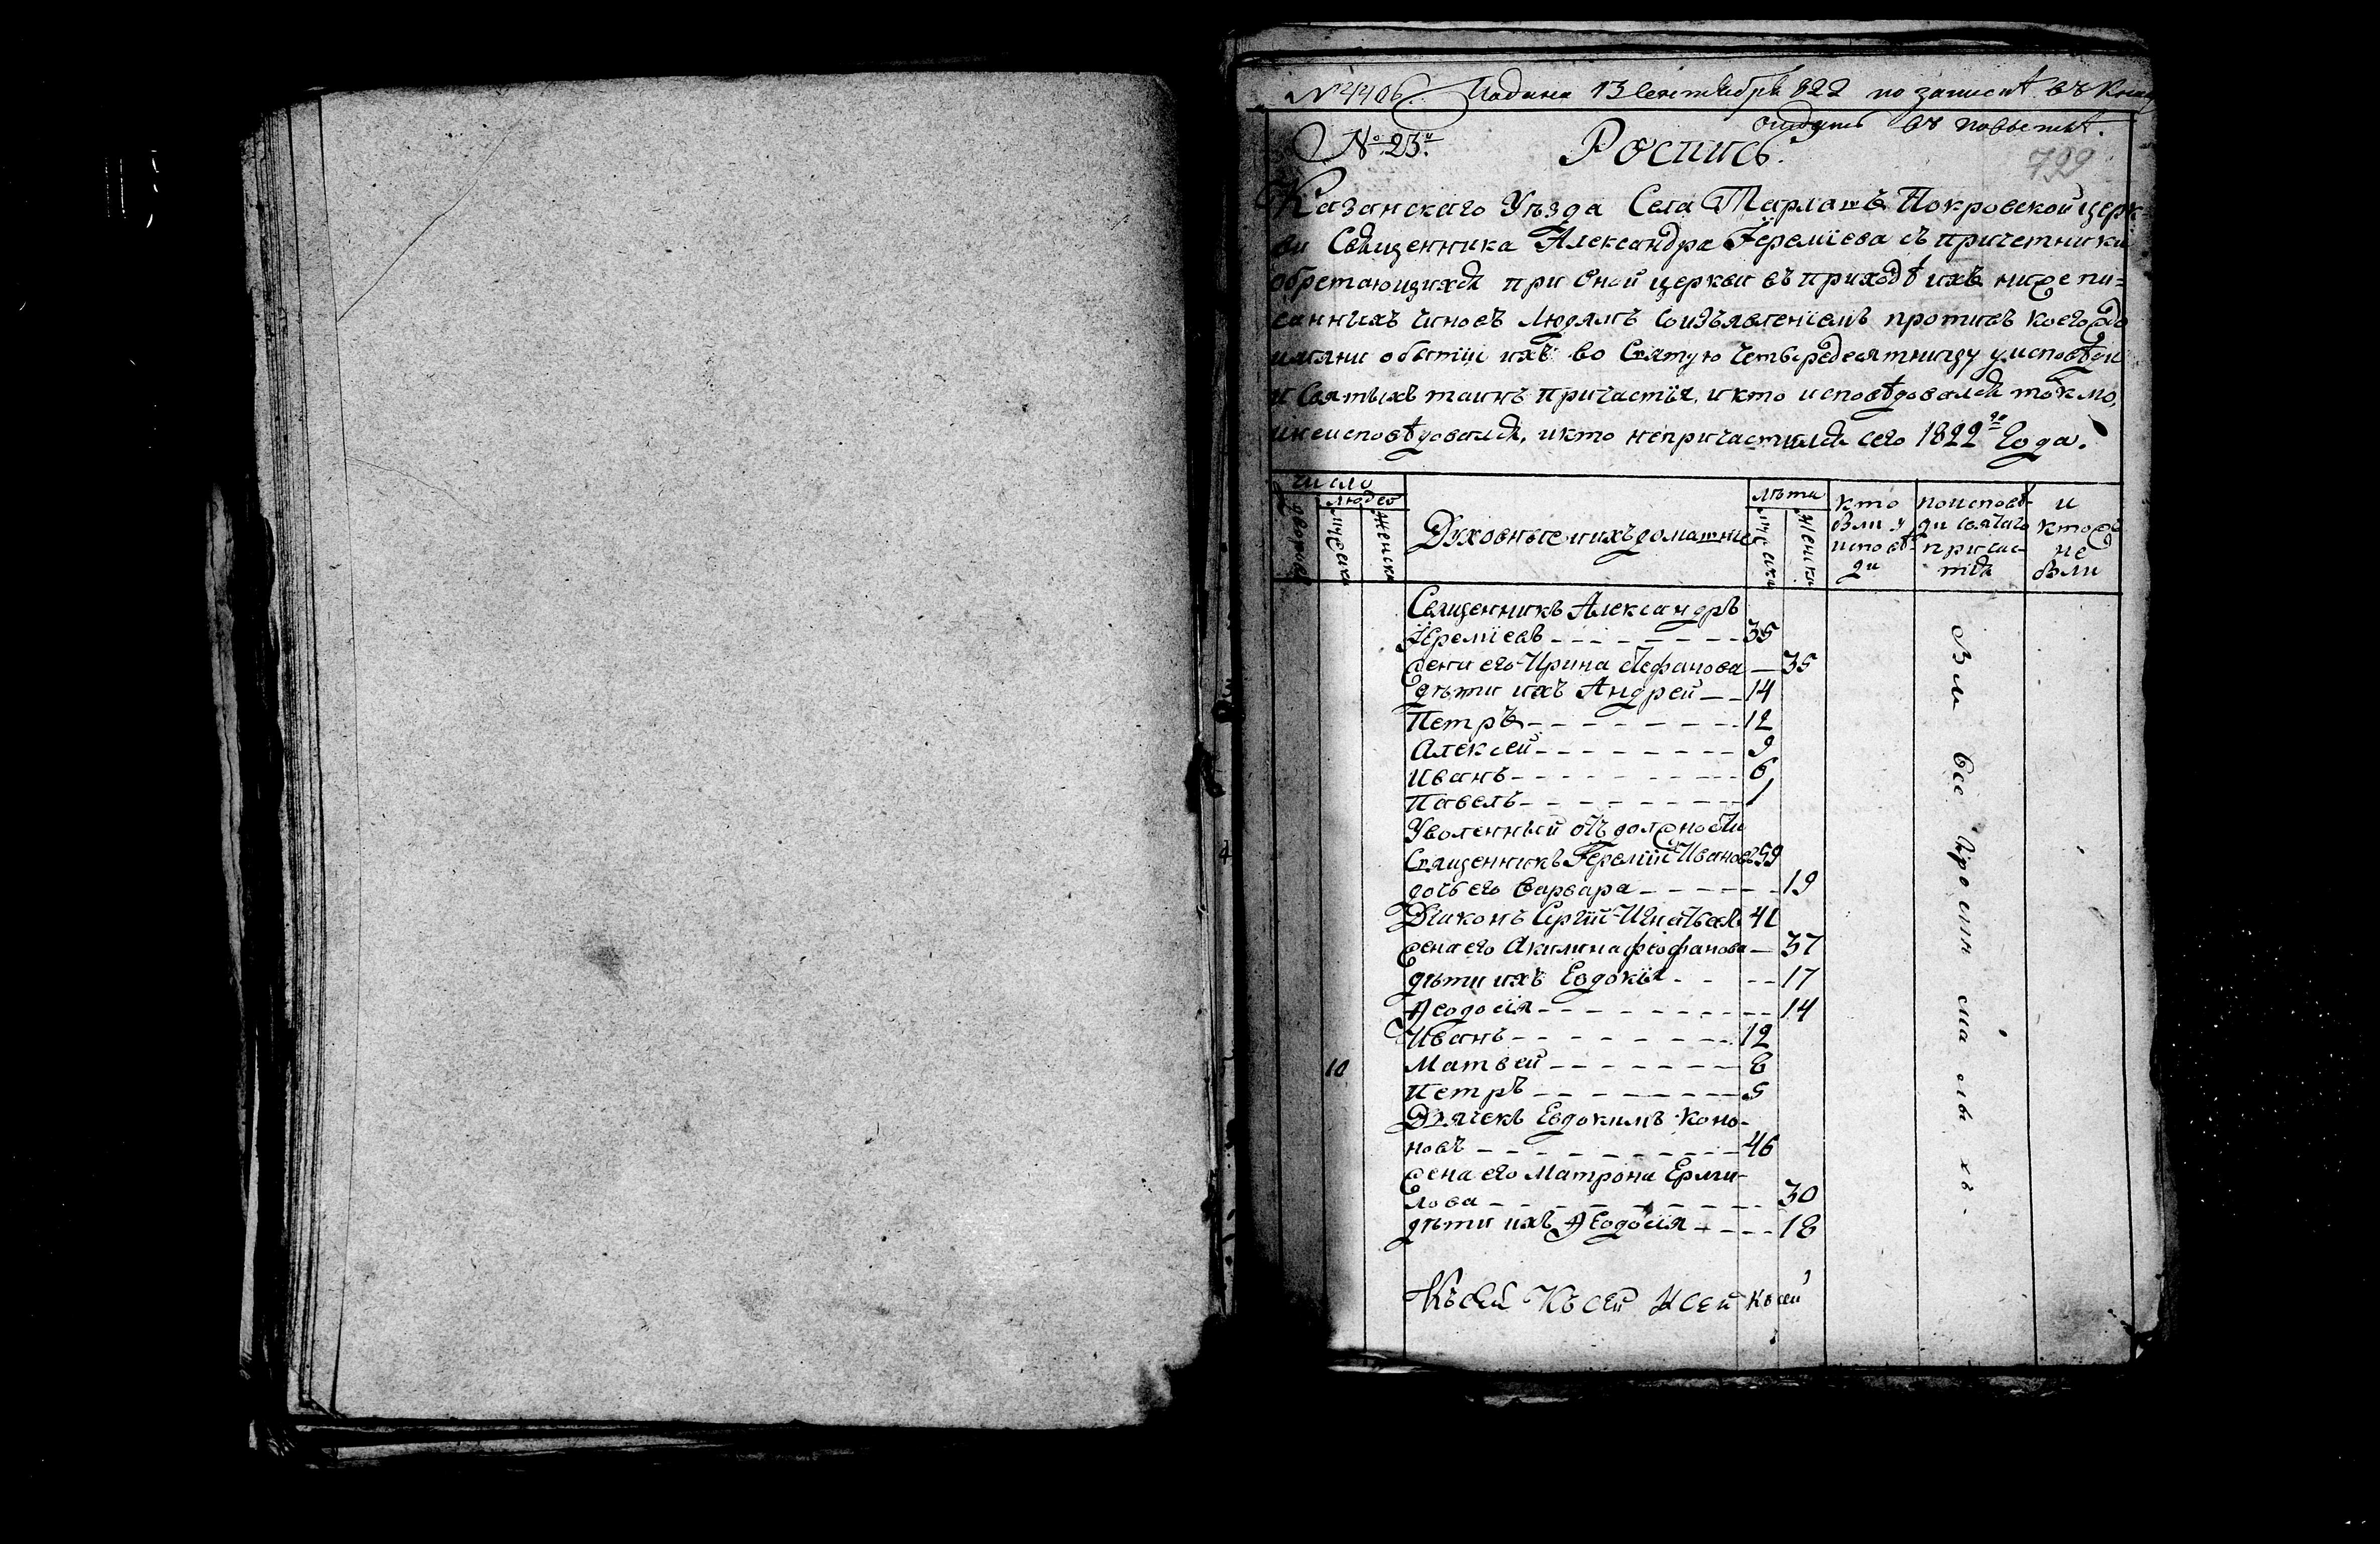 № 4406. Подана 13 Сентября 822 по запискѣ въ
отдать въ повытьѣ.
№ 23й.
Роспись.
799
Казанскаго Уѣзда Села Тарлашъ Покровской церк=
ви Священника Александра Іереміева съ причетники
обретающихся при оной церкви въ приходѣ ихъ нижепи=
санныхъ чиновъ людямъ со изъявленіемъ противъ коегождо
имяни о бытіи ихъ во Святую четыредесятницу у исповѣди
и Святыхъ таинъ причастія, и кто исповѣдовался токмо,
и не исповѣдовался, и кто не причастился сего 1822го Года.
Число
людей
дворовъ
мужеска
женска
Духовные и ихъ домашніе
лѣты
мужска
женска
кто
были у
исповѣ-
ди
по исповѣ-
ди святаго
причас-
тія
и
ктожъ
не
были
Священникъ Александръ
Іереміевъ 35
жена его Ирина Стефанова 35
дѣти ихъ Андрей 14
Петръ 12
Алексей 9
Иванъ 6
Павелъ 1
Уволенный отъ должности
Священникъ Іеремій Ивановъ 59
дочь его Варвара 19
Діаконъ Сергій Игнатьевъ 41
жена его Акилина Феофанова 37
дѣти ихъ Евдокія 17
Ѳеодосія 14
Иванъ 12
10 Матвей 8
Петръ 5
Дьячекъ Евдокимъ Коно-
новъ 46
жена его Матрона Ерми-
лова 30
дѣти ихъ Ѳеодосія 18
Были все кроми малыхъ.
Къ сей Къ сей К сей Къ сей